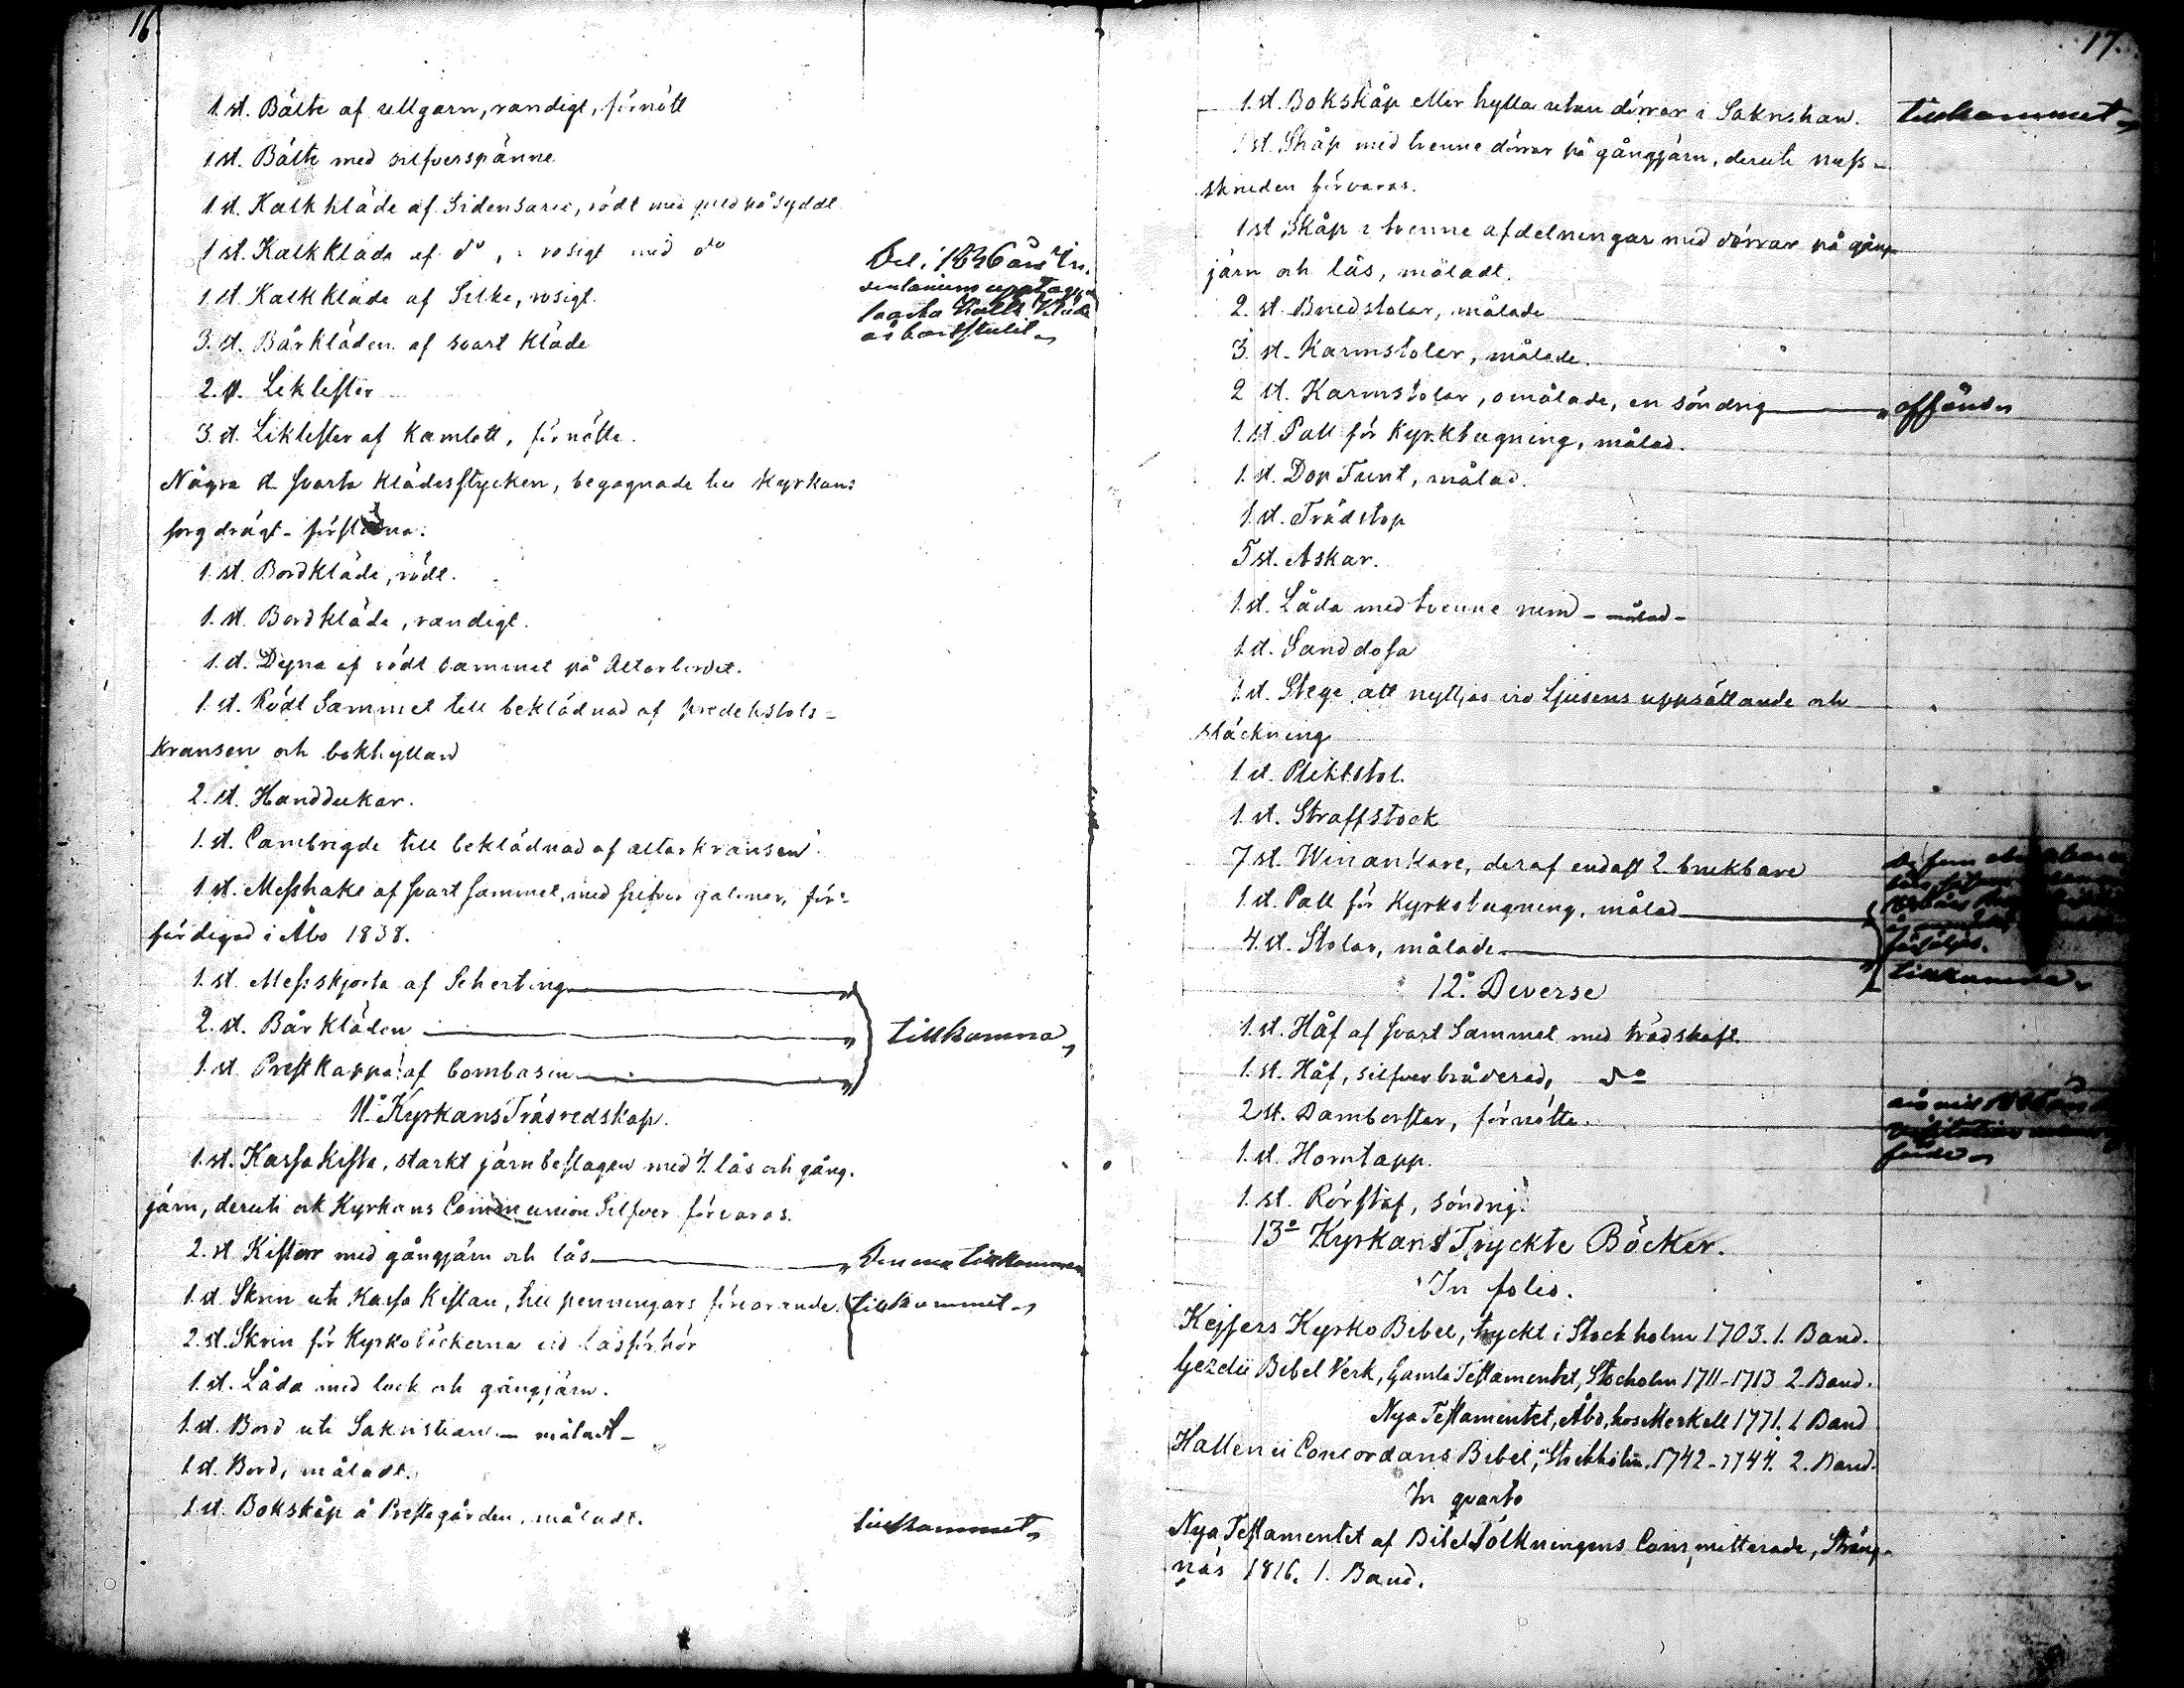 16.
1. st. Bälte af ullgarn, randigt, förnött
1 st. Bälte med silfverspänne
1. st. Kalkkläde af Sidensars, rödt med guld påsyddt
1 st. Kalkkläde af do, rosigt med do
1. st. Kalkkläde af Silke, rosigt.
Det i 1836 års In-
ventarium upptagna
Kalk Kläde
är bortstulit
3. st. Bårkläden af svart kläde
2. st. Liklister
3. st. Liklister af Kamlott, förnötte.
Några st. svarta klädesstycken, begagnade till Kyrkans
sorgdrägt
1. st. Bordkläde, rödt.
1. st. Bordkläde, randigt.
1. st. Dyna af rödt sammet på Altarbordet.
1. st. Rödt Sammet till beklädnad af predikstols-
kransen och bokhyllan
2. st. Handdukar.
1. st. Cambrigde till beklädnad af altarkransen
1 st. Messhake af svart sammet, med silfver galoner, för-
färdigad i Åbo 1838.
1. st. Messskjorta af Scherting
2. st. Bårkläden
1. st. Prestkappa af bombasin
tillkomna
11o Kyrkans Trädredskap.
1. st. Kassa Kista, starkt järnbeslagen med 4 lås och gång-
järn, deruti ock Kyrkans Communion Silfver förvaras.
2. st Kistor med gångjärn och lås Denna tillkommen
1. st. Skrin uti Kassa Kistan, till penningars förvarande. tillkommet
2. st. Skrin för Kyrkoböckerna vid läsförhör
1. st. Låda med lock och gångjärn.
1. st. Bord uti Sakristian - måladt -
1 st. Bord, måladt.
1 st. Bokskåp å Prestegården, måladt. tillkommet
17.
1. st. Bokskåp eller hylla utan dörrar i Sakrishan. tillkommet
1 st. Skåp med tvenne dörrar på gångjärn, deruti mess-
skruden förvaras.
1 st. Skåp i tvenne afdelningar med dörrar på gång-
järn och lås, måladt.
2. st. Brudstolar, målade
3. st. Karmstolar, målade.
2 st. Karmstolar, omålade, en söndrig
1. st. Pall för Kyrktagning, målad.
1. st. Dop Funt, målad.
1. st. Trädstop
5 st. Askar.
1. st. Låda med tvenne rum - målad -
1 st. Sanddosa
1 st. Stege att nyttjas vid Ljusens uppsättande och
släckning
1. st. Pliktstol.
1 st. Straffstock
7 st. Winankare, deraf endast 2. brukbare
1. st. Pall för Kyrkotagning, målad
4. st. Stolar, målade
försäljas.
tillkomna
12o Diverse
1. st. Håf af svart Sammet med trädskaft.
1. st. Håf, silfverbråderad, do
2 st. Damborstar, förnötte.
1. st. Horntapp.
1 st. Rörstaf, söndrig.
13o Kyrkans Tryckte Böcker.
In folio.
Keysers Kyrko Bibel, tryckt i Stockholm 1703. 1. Band.
Gezelii Bibel Verk, Gamla Testamentet, Stocholm 1711-1713 2. Band.
Nya Testamentet, Åbo, hos Merkell 1771. 1 Band
Hallenii Concordans Bibel, Stockholm. 1742-1744. 2. Band.
In quarto
Nya Testamentet af BibelTolkningens Committerade, Sträng-
näs 1816. 1. Band.